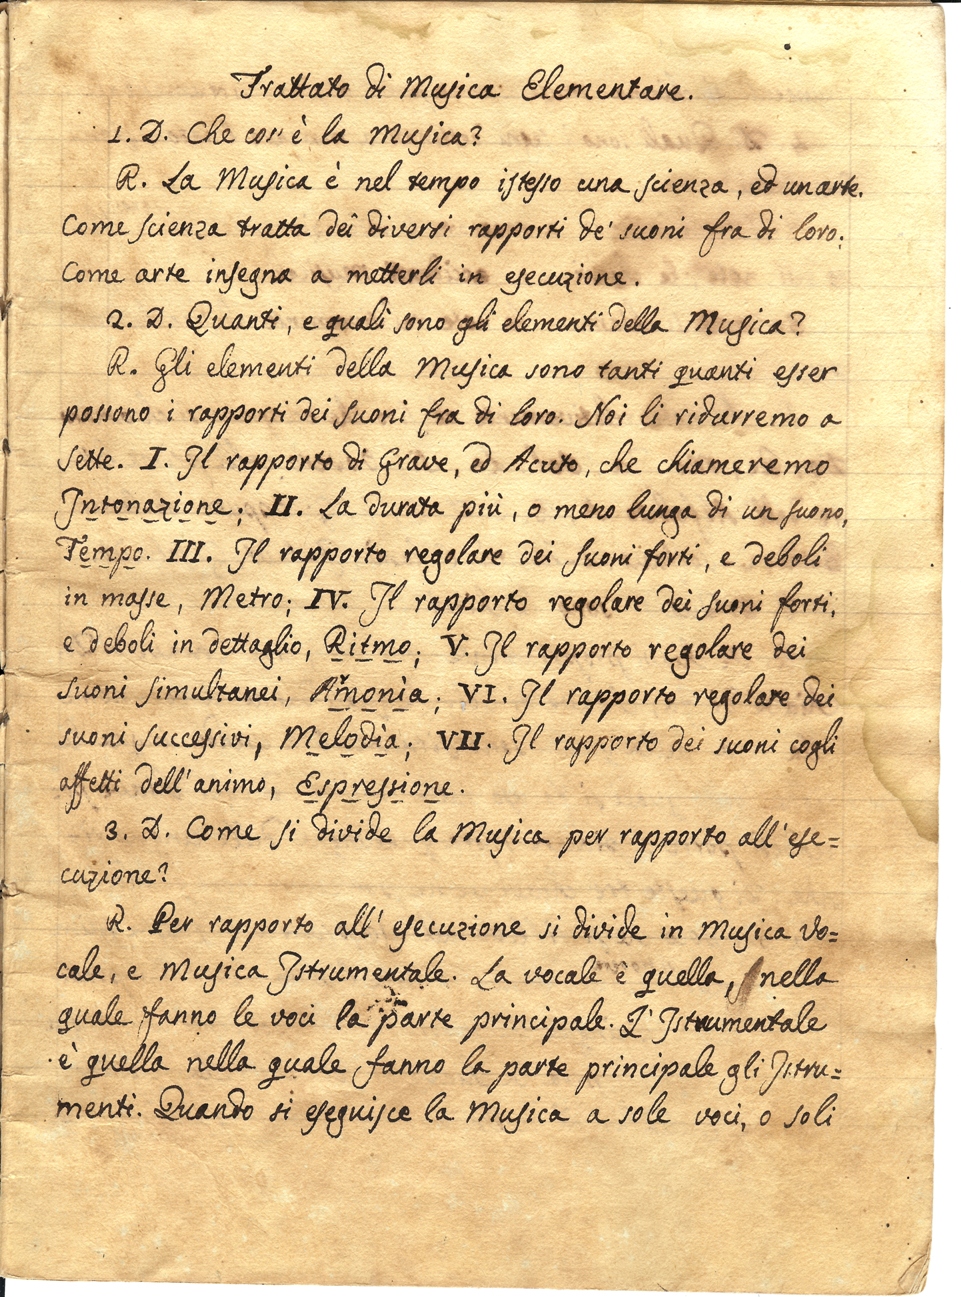 Trattato di Musica Elementare.
1. D. Che cos' è la Musica?
R. La Musica è nel tempo istesso una scienza, ed un arte.
Come scienza tratta dei diversi rapporti de' suoni fra di loro.
Come arte insegna a metterli in esecuzione.
2. D. Quanti, e quali sono gli elementi della Musica?
R. Gli elementi della Musica sono tanti quanti esser
possono i rapporti dei suoni fra di loro. Noi li ridurremo a
sette. I. Il rapporto di Grave, ed Acuto, che chiameremo
Intonazione; II. La durata più, o meno lunga di un suono,
Tempo. III. Il rapporto regolare dei suoni forti, e deboli
in masse, Metro; IV. Il rapporto regolare dei suoni forti,
e deboli in dettaglio, Ritmo; V. Il rapporto regolare dei
suoni simultanei, Armonia; VI. Il rapporto regolare dei
suoni successivi, Melodia; VII. Il rapporto dei suoni cogli
affetti dell'animo, Espressione.
3. D. Come si divide la Musica per rapporto all'ese=
cuzione?
R. Per rapporto all' esecuzione si divide in Musica Vo=
cale, e Musica Istrumentale. La vocale è quella, nella
quale fanno le voci la parte principale. L' Istrumentale
è quella nella quale fanno la parte principale gli Istru=
menti. Quando si eseguisce la Musica a sole voci, o soli